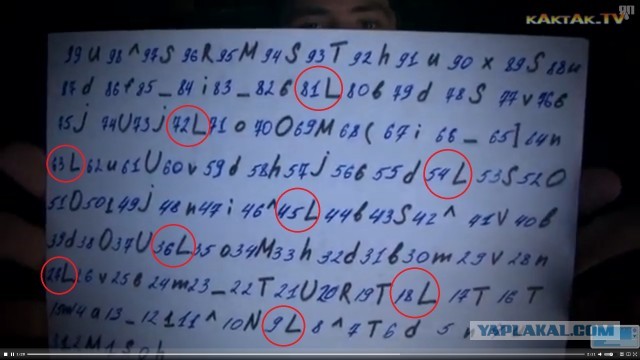 KAKTAK.TV
99u 98^ 97S 96R 95M 94S 93T 92h 91u 90x 89S 88u
87d 86f 85_ 84i 83_ 82б 81L 80в 79d 78S 77v 76в
75j 74U 73j 72L 71o 70O 69M 68( 67i 66_ 65] 64n
63L 62u 61U 60v 59d 58h 57j 56в 55d 54L 53S 52O
51O 50L 49j 48n 47i 46^ 45L 44в 43S 42^ 41v 40в
39d 38O 37U 36L 35o 34M 33h 32d 31в 30m 29v 28n
27L 26v 25в 24m 23_ 22T 21U 20R 19T 18L 17T 16T
14a 13_ 12 11^ 10N 9L 8^ 7T 6d 5
YAPLAKAL.COM